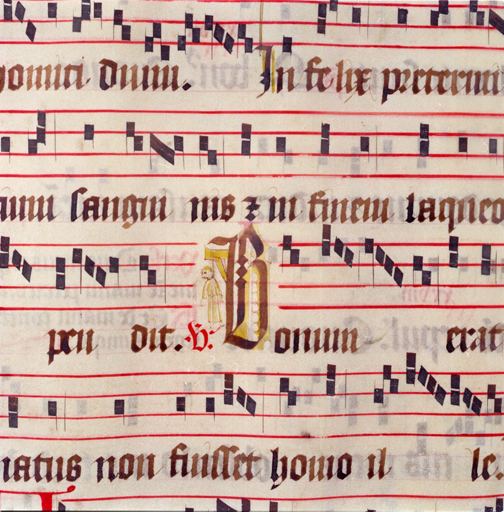 homini dium. Infelix pretermi
sangui nis z in finem laqueo
pen dit. V: Bonum erat
natus non fuisset homo il le.